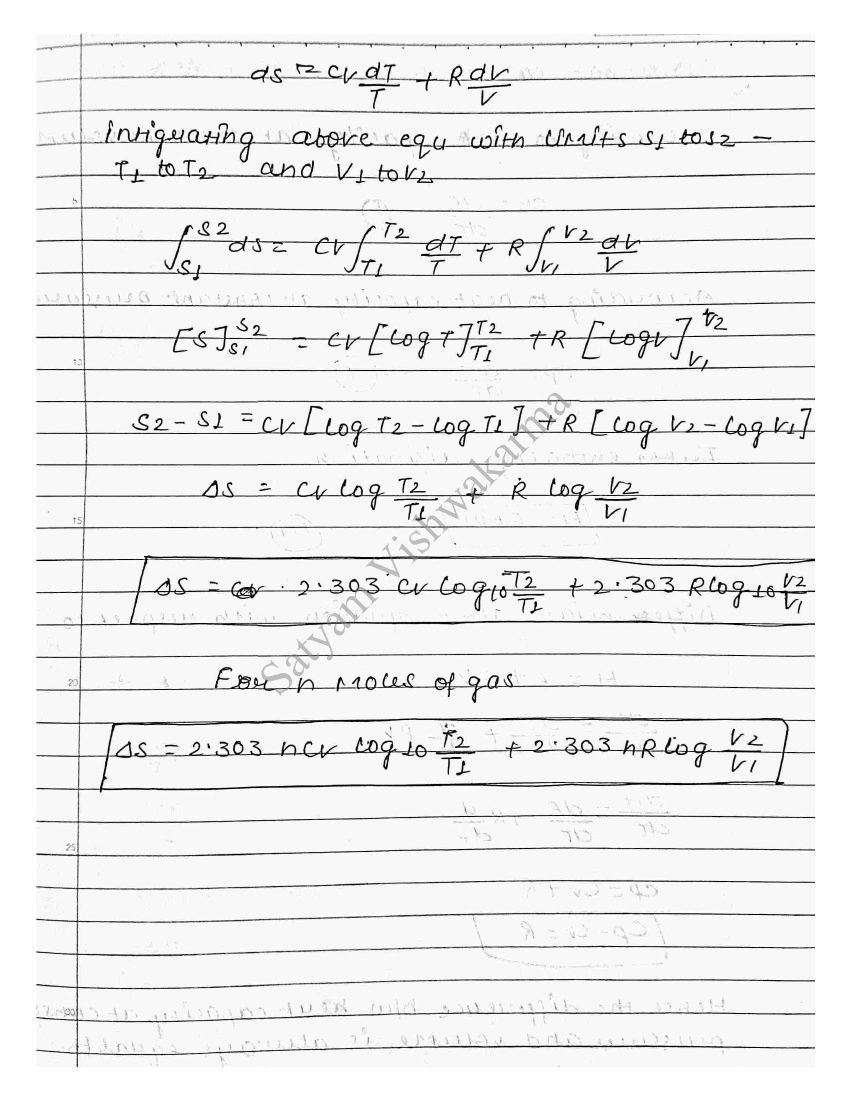 ds = Cv dT/T + R dv/V
intiguating above equ with limits S1 to S2 -
T1 to T2 and V1 to V2
∫S1^S2 ds = Cv ∫T1^T2 dT/T + R ∫V1^V2 dv/V
[S]S1^S2 = Cv [log T]T1^T2 + R [log V]V1^V2
S2 - S1 = Cv [log T2 - log T1] + R [log V2 - log V1]
ΔS = Cv log T2/T1 + R log V2/V1
ΔS = 2.303 Cv log10 T2/T1 + 2.303 R log10 V2/V1
For n moles of gas
ΔS = 2.303 nCv log10 T2/T1 + 2.303 nR log V2/V1
Satyam Vishwakarma
5
10
15
20
25
30